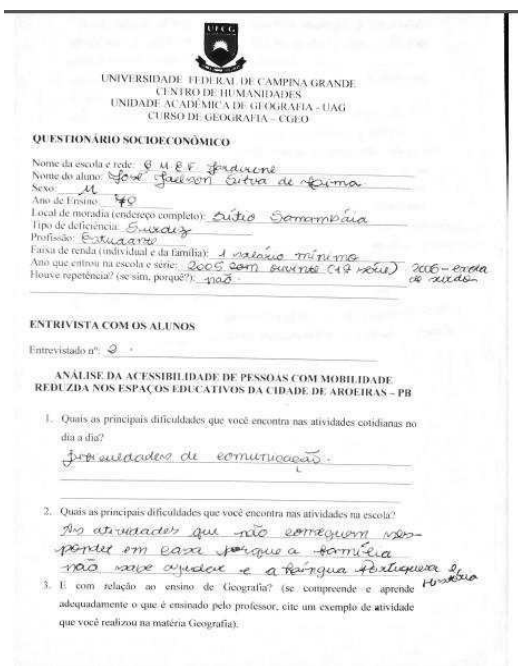 UFCG
UNIVERSIDADE FEDERAL DE CAMPINA GRANDE
CENTRO DE HUMANIDADES
UNIDADE ACADÊMICA DE GEOGRAFIA - UAG
CURSO DE GEOGRAFIA – CGEO
QUESTIONÁRIO SOCIOECONÔMICO
Nome da escola e rede: E M E F
Nome do aluno: José Jaelson Silva de Lima
Sexo: M
Ano de Ensino
Local de moradia (endereço completo): Sítio Samambáia
Tipo de deficiência: Surdez
Profissão: Estudante
Faixa de renda (individual e da família): 1 salário mínimo
Ano que entrou na escola e série: 2005 com ouvinte (1ª série) 2006 - escola
de surdos
Houve repetência? (se sim, porquê?): não
ENTREVISTA COM OS ALUNOS
Entrevistado nº: 2
ANÁLISE DA ACESSIBILIDADE DE PESSOAS COM MOBILIDADE
REDUZDA NOS ESPAÇOS EDUCATIVOS DA CIDADE DE AROEIRAS – PB
1. Quais as principais dificuldades que você encontra nas atividades cotidianas no
dia a dia?
de comunicação.
2. Quais as principais dificuldades que você encontra nas atividades na escola?
As atividades que não conseguem res-
ponder em casa porque a família
não sabe ajudar e a Língua Portuguesa e
História
3. E com relação ao ensino de Geografia? (se compreende e aprende
adequadamente o que é ensinado pelo professor, cite um exemplo de atividade
que você realizou na matéria Geografia).